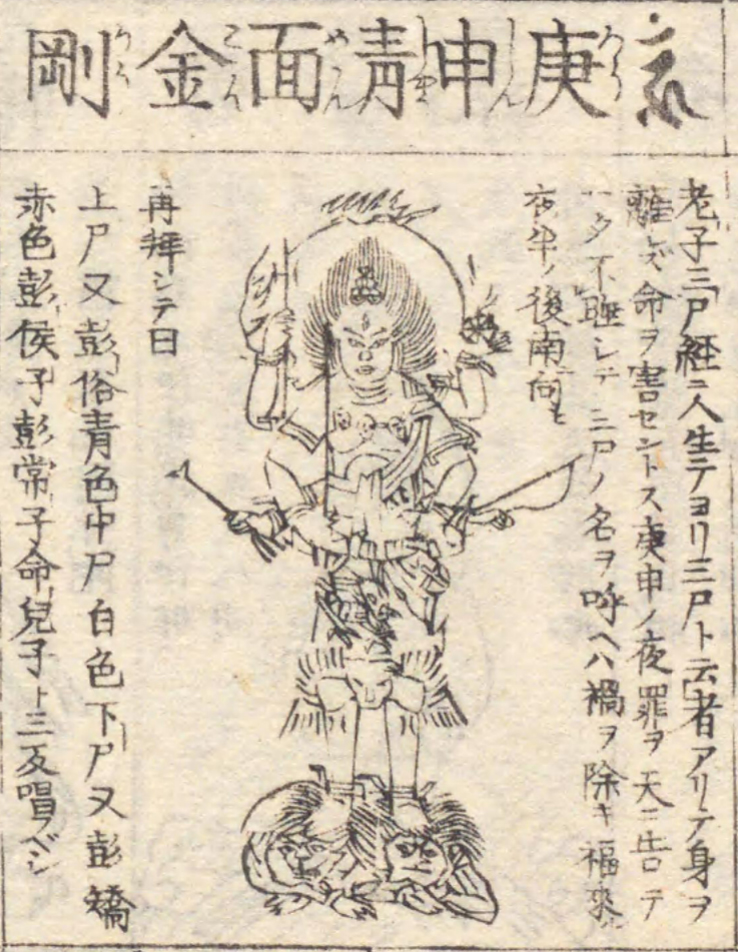 庚申青面金剛
かうしんしやうめんこんかう
老子三尸経ニ人生テヨリ三尸ト云者アリテ身ヲ
離レズ命ヲ害セントス庚申ノ夜罪ヲ天ニ告テ
不睡シテ三尸ノ名ヲ呼ヘハ禍ヲ除キ福來ル
夜半ノ後南向ヒ
再拜シテ曰
上尸又彭俗青色中尸白色下尸又彭矯
赤色彭侯子彭常子命兒子ト三反唱フベシ